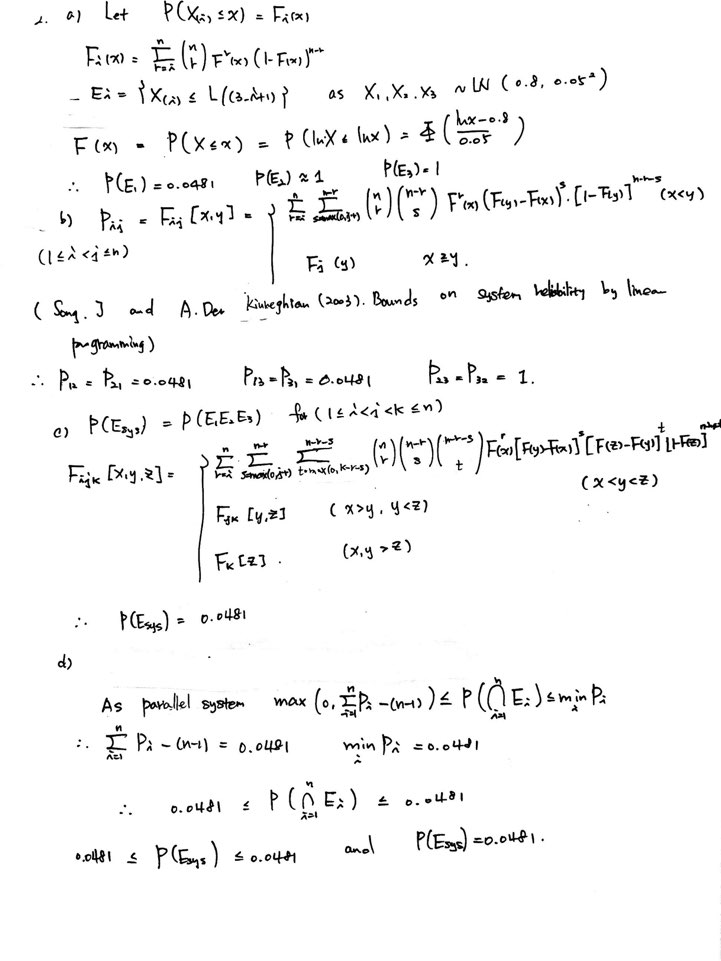 2. a) Let P(X(i) ≤ x) = Fi(x)
Fi(x) = Σ_{r=i}^{n} (n r) F^r(x) (1-F(x))^{n-r}
- Ei = { X(i) ≤ L/(3-i+1) } as X1, X2, X3 ~ LN (0.8, 0.05²)
F(x) = P(X≤x) = P(lnX ≤ lnx) = Φ((lnx-0.8)/0.05)
∴ P(E1) = 0.0481 P(E2) ≈ 1 P(E3) = 1
b) Pij = Fij [x,y] = { Σ_{r=i}^{n} Σ_{s=max(0,j-r)}^{n-r} (n r) (n-r s) F^r(x) (F(y)-F(x))^s · [1-F(y)]^{n-r-s} (x<y)
(1≤i<j≤n) Fj (y) x≥y.
(Song. J and A. Der Kiureghian (2003). Bounds on system reliability by linear
programming)
∴ P12 = P21 = 0.0481 P13 = P31 = 0.0481 P23 = P32 = 1.
c) P(Esys) = P(E1E2E3) for (1≤i<j<k≤n)
Fijk [x,y,z] = { Σ_{r=i}^{n} Σ_{s=max(0,j-r)}^{n-r} Σ_{t=max(0,k-r-s)}^{n-r-s} (n r) (n-r s) (n-r-s t) F^r(x) [F(y)-F(x)]^s [F(z)-F(y)]^t [1-F(z)]^{n-r-s-t}
(x<y<z)
Fjk [y,z] (x>y, y<z)
Fk [z]. (x,y >z)
∴ P(Esys) = 0.0481
d)
As parallel system max (0, Σ_{i=1}^{n} Pi -(n-1)) ≤ P(∩_{i=1}^{n} Ei) ≤ min_i Pi
∴ Σ_{i=1}^{n} Pi -(n-1) = 0.0481 min_i Pi = 0.0481
∴ 0.0481 ≤ P(∩_{i=1}^{n} Ei) ≤ 0.0481
0.0481 ≤ P(Esys) ≤ 0.0481 and P(Esys) = 0.0481.